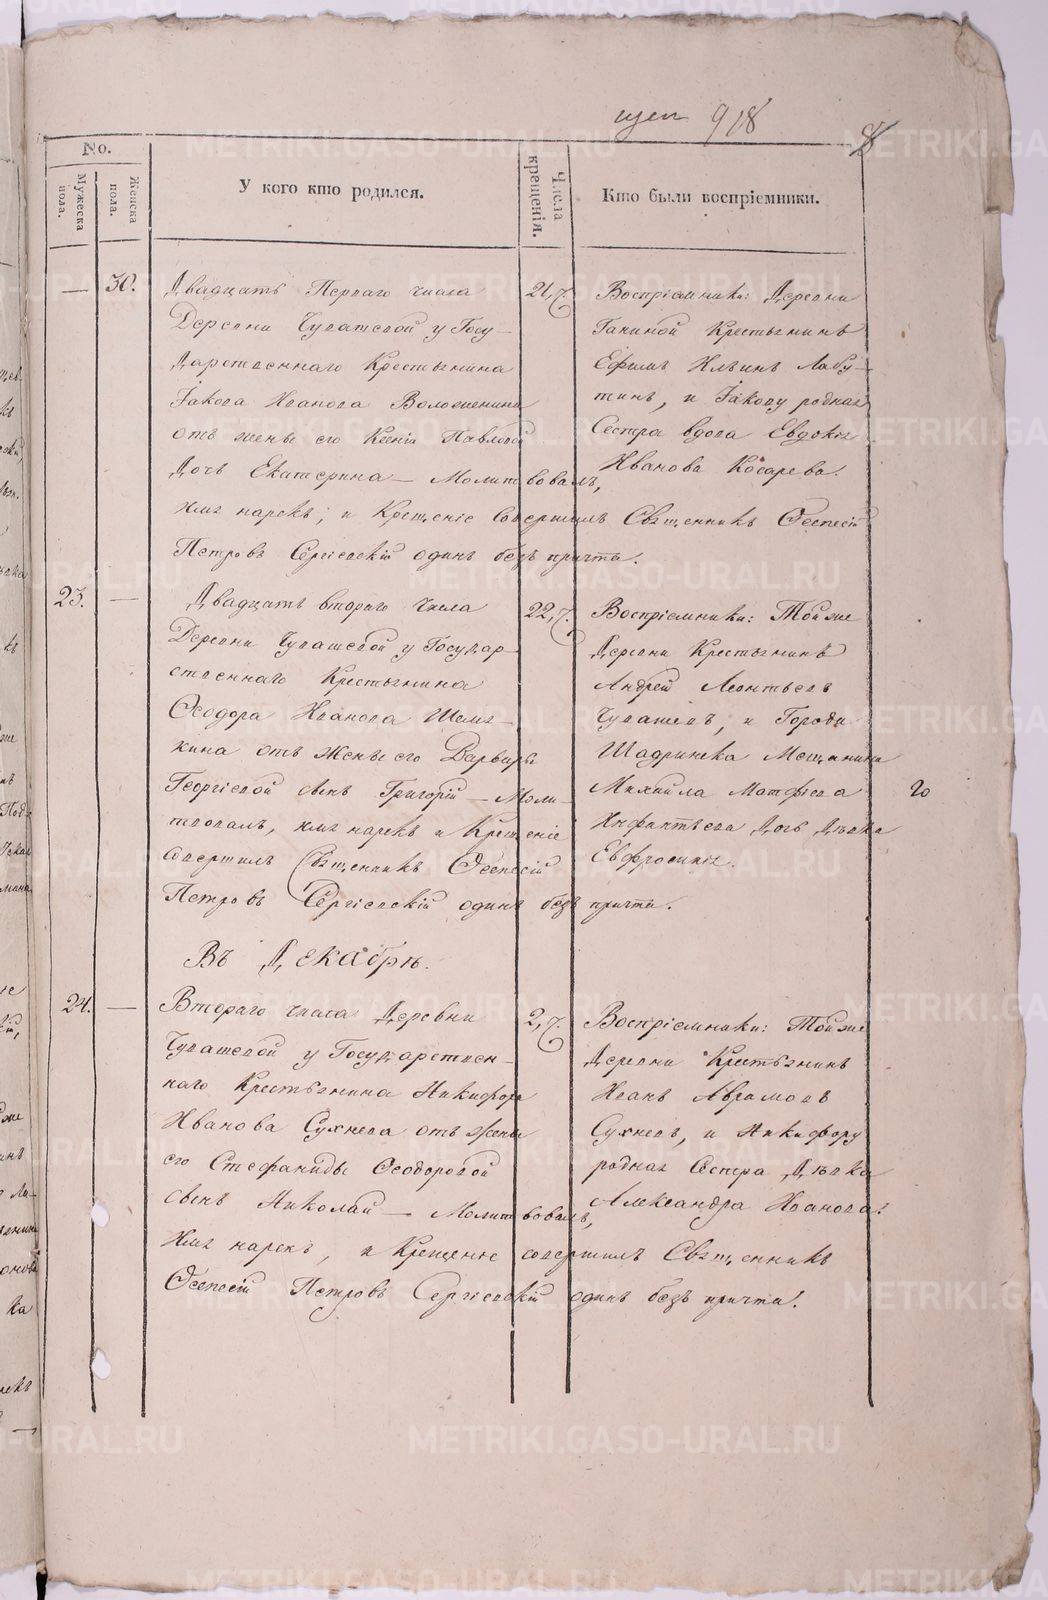 918
8
No.
Мужеска пола.
Женска пола.
У кого кто родился.
Числа крещенія.
Кто были воспріемники.
— 30. Двадцать Перваго числа
Деревни Чувашевой у Госу–
Дарственнаго Крестьянина
Іакова Иванова Воложенина
отъ жены его Ксеніи Павловой
Дочь Екатерина — Молитвовалъ,
имя нарекъ, и Крещеніе совершилъ Священникъ
Петровъ Сергіевскій одинъ безъ причта.
21,
Воспріемники: Деревни
Ганиной Крестьянинъ
Ефимъ Ильинъ Лабу–
тинъ, и Іакову родная
Сестра вдова Евдокія
Иванова Косарева.
23. — Двадцать втораго числа
Деревни Чувашевой у Государ–
ственнаго Крестьянина
Ѳеодора Иванова
отъ Жены его Варвары
Георгіевой сынъ Григорій — Моли–
твовалъ, имя нарекъ и Крещеніе
совершилъ Священникъ
Петровъ Сергіевскій одинъ безъ причта.
22,
Воспріемники: Той же
Деревни Крестьянинъ
Андрей Леонтьевъ
Чувашевъ, и Города
Шадринска Мещанина
Михайла Матфѣева
Инфантьева Дочь Дѣвка
Евфросинія.
Въ Декабрѣ.
24. — Втораго числа Деревни
Чувашевой у Государствен–
наго Крестьянина Никифора
Иванова Сухнева отъ Жены
его Стефаниды Ѳеодоровой
сынъ Николай — Молитвовалъ,
Имя нарекъ, и Крещеніе совершилъ Священникъ
Петровъ Сергіевскій одинъ безъ причта.
2,
Воспріемники: Той же
Деревни Крестьянинъ
Иванъ Аврамовъ
Сухневъ, и Никифору
родная Сестра Дѣвка
Александра Иванова.
METRIKI.GASO-URAL.RU